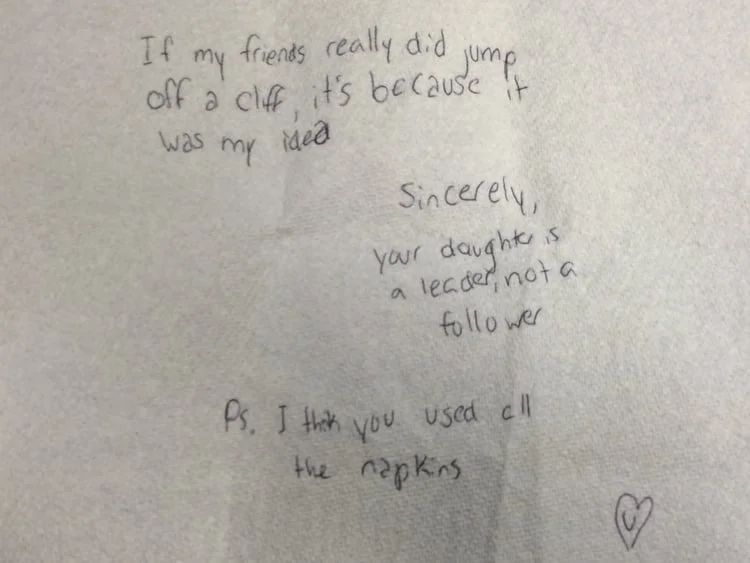 If my friends really did jump
off a cliff, it's because it
was my idea
Sincerely,
your daughter is
a leader, not a
follower
Ps. I think you used all
the napkins